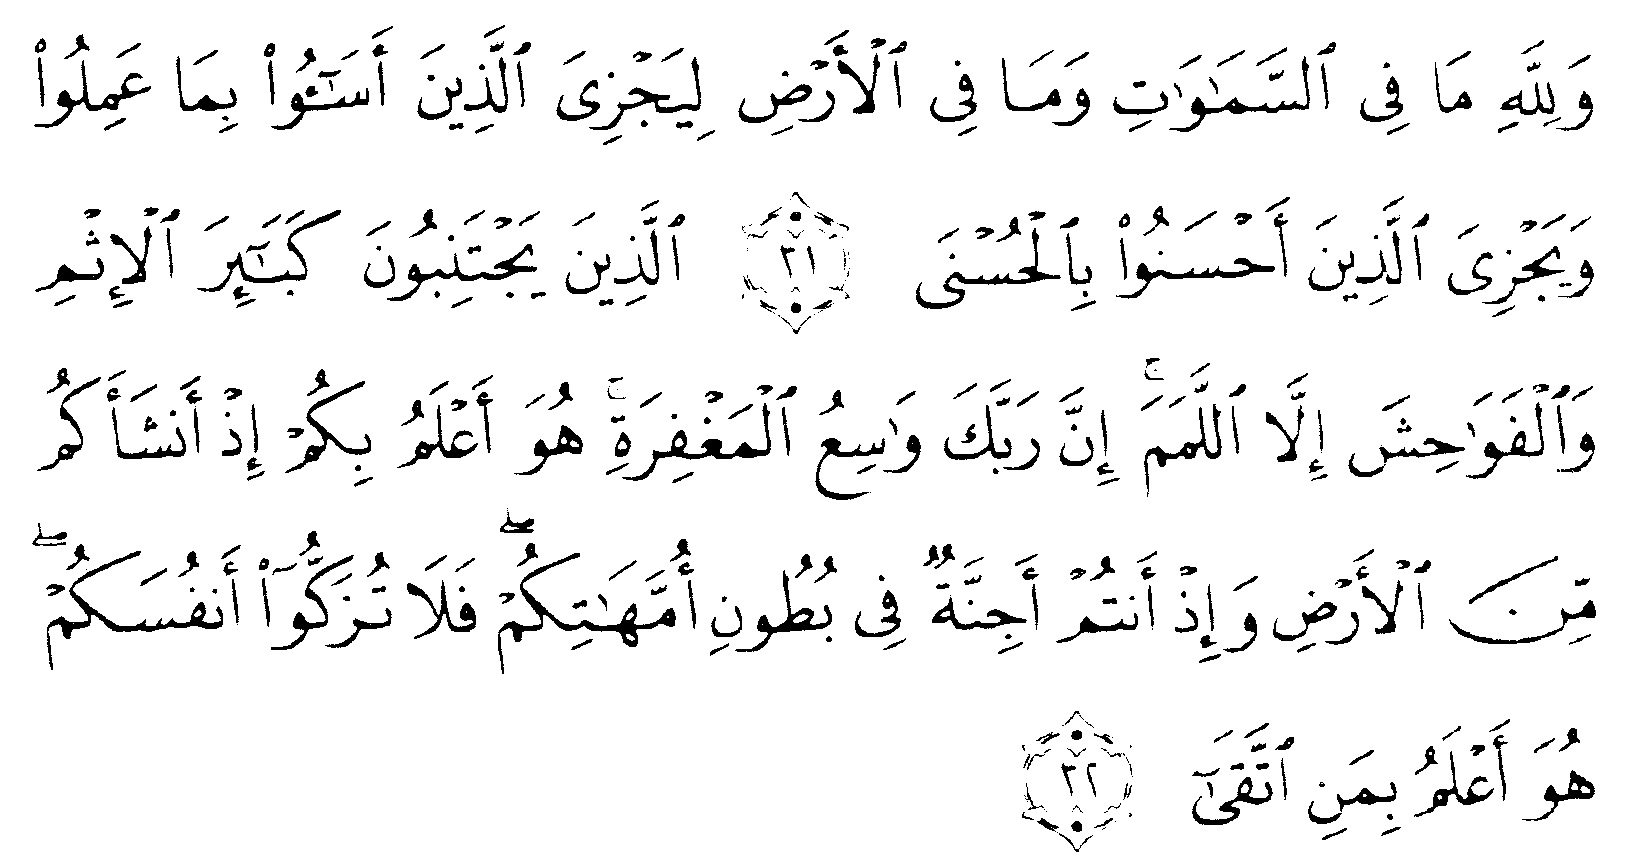 وَلِلَّهِ مَا فِى ٱلسَّمَٰوَٰتِ وَمَا فِى ٱلْأَرْضِ لِيَجْزِىَ ٱلَّذِينَ أَسَٰٓـُٔوا۟ بِمَا عَمِلُوا۟
وَيَجْزِىَ ٱلَّذِينَ أَحْسَنُوا۟ بِٱلْحُسْنَى ٣١ ٱلَّذِينَ يَجْتَنِبُونَ كَبَٰٓئِرَ ٱلْإِثْمِ
وَٱلْفَوَٰحِشَ إِلَّا ٱللَّمَمَ ۚ إِنَّ رَبَّكَ وَٰسِعُ ٱلْمَغْفِرَةِ ۚ هُوَ أَعْلَمُ بِكُمْ إِذْ أَنشَأَكُم
مِّنَ ٱلْأَرْضِ وَإِذْ أَنتُمْ أَجِنَّةٌ فِى بُطُونِ أُمَّهَٰتِكُمْ ۖ فَلَا تُزَكُّوٓا۟ أَنفُسَكُمْ ۖ
هُوَ أَعْلَمُ بِمَنِ ٱتَّقَىٰٓ ٣٢